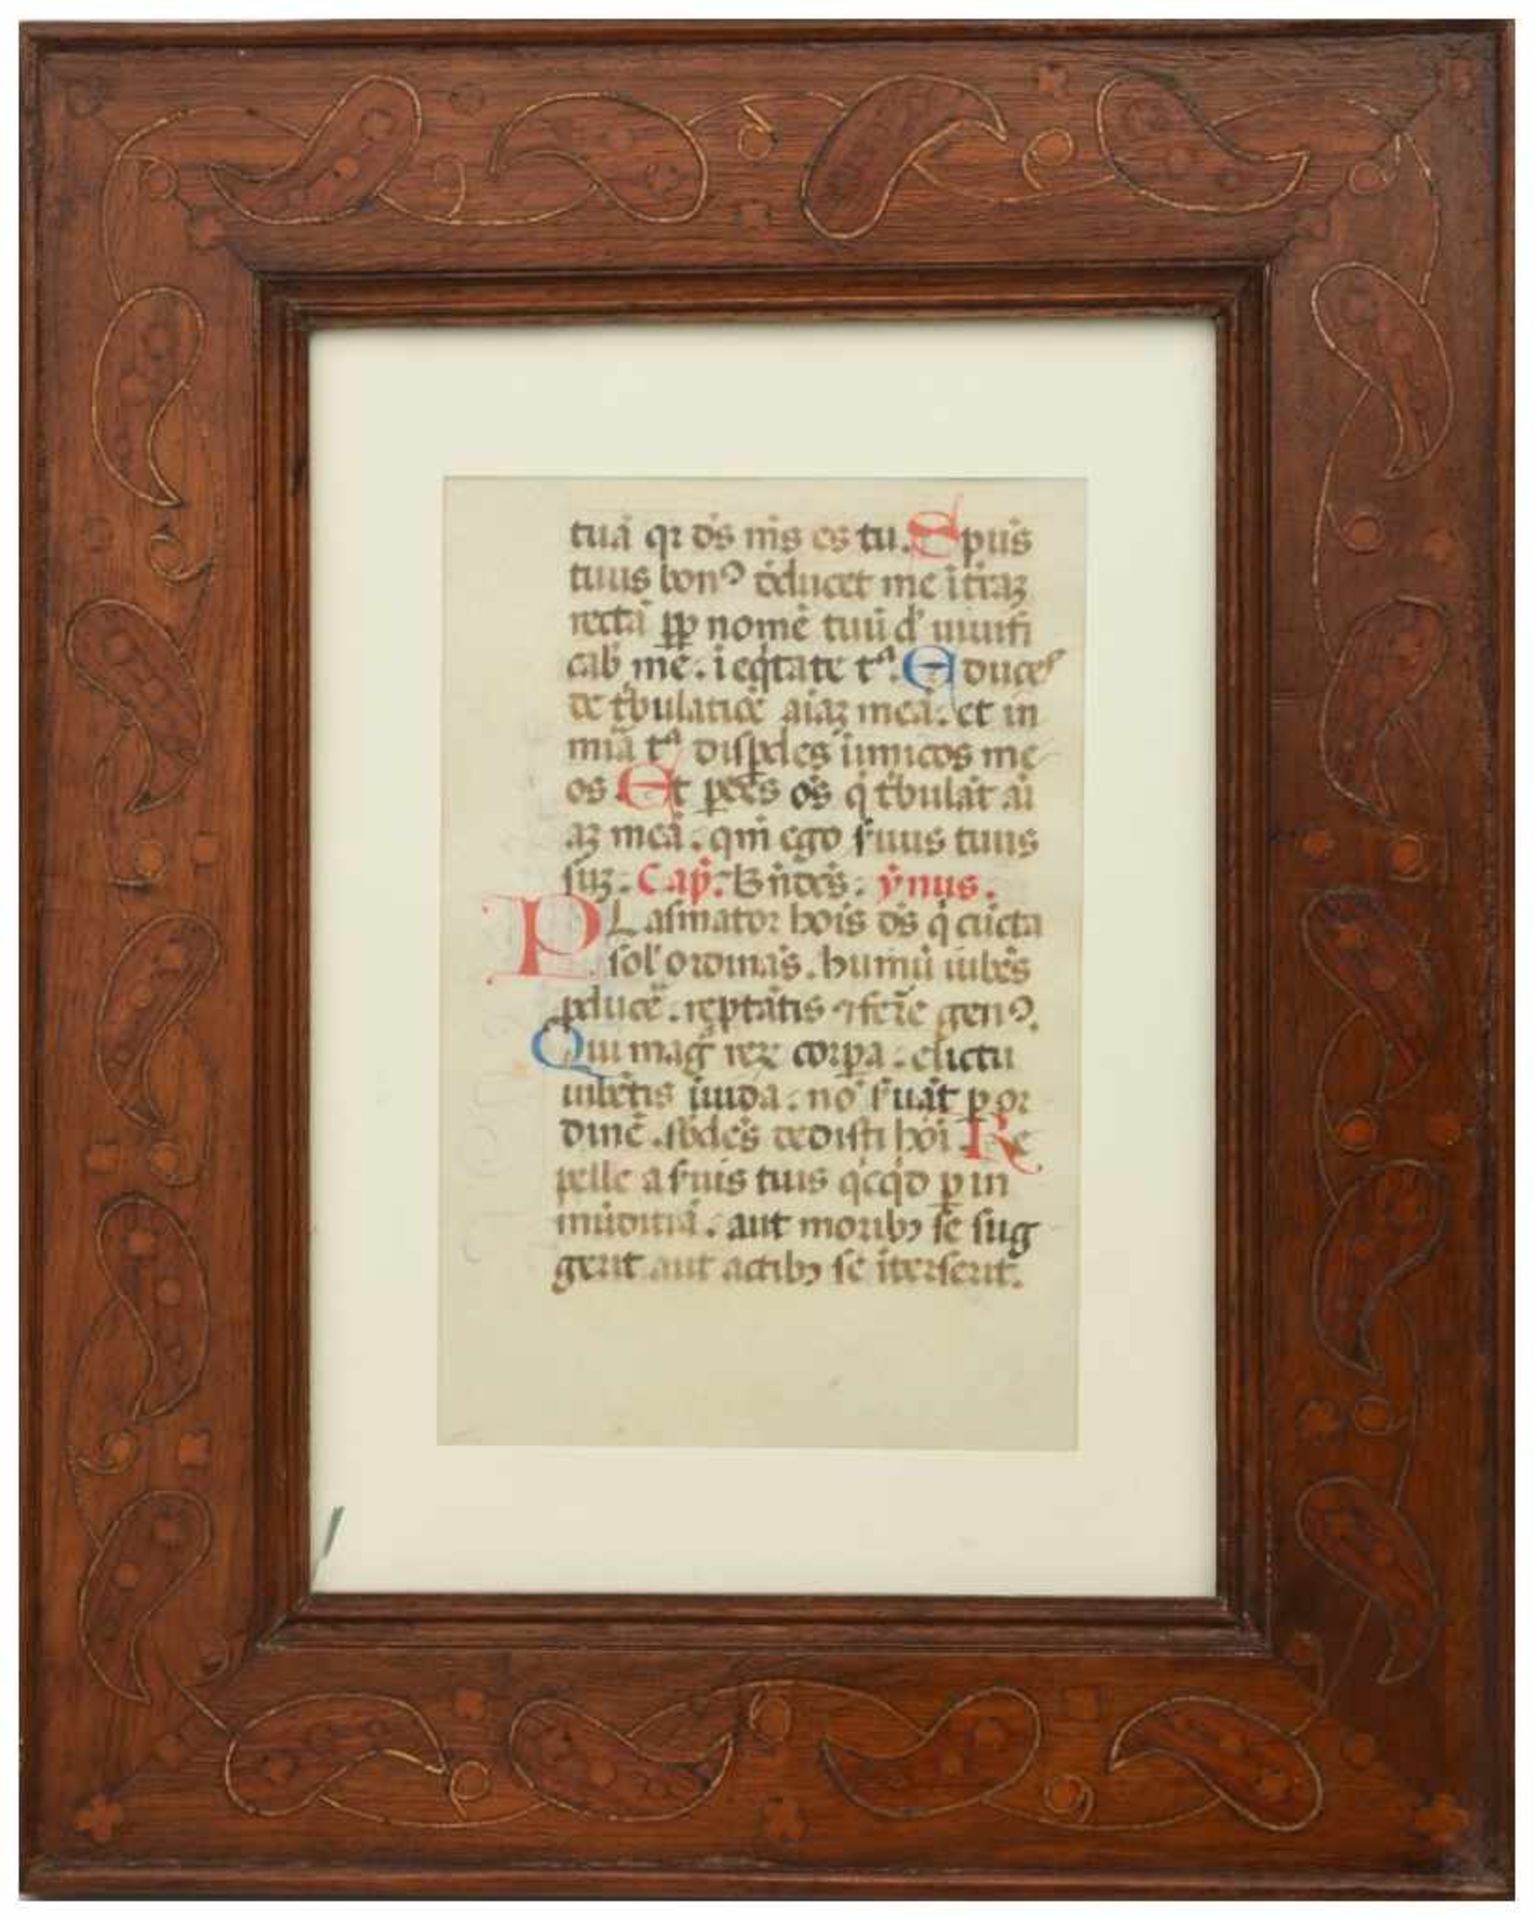 tuā qr ds ms es tu. Spūs
tuus bonꝰ deducet me ī traꝫ
rectā ꝓp nomē tuū d' uiuifi
cab' me. ī eq̇tate tª. Educes
de t'bulatiōe aiaꝫ meā. et in
mīa tª disꝑdes inimicos me
os. Et ꝑdes os q̇ t'bulāt ai
aꝫ meā. qm̄ ego s'uus tuus
suꝫ. Cap̄. Bn̄des. ẏnus.
PLasmator hois ds q̇ cūcta
sol' ordinas. humū iubes
ꝑducē. reptātis ⁊ fere genꝰ.
Qui magͣ reꝝ corꝑa. dictu
iubētis uiuida. no s'uāt ꝑ or
dinē. sbdes dedisti hoī. Re
pelle a s'uis tuis q̇cq̇d ꝑ in
mūditiā. aut moribꝫ se sug
gerit aut actibꝫ se īterserit.